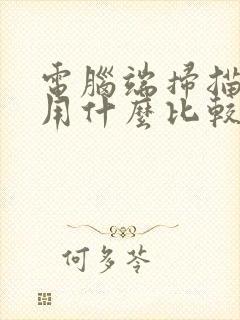 電腦端掃描
用什麼比較
何多苓